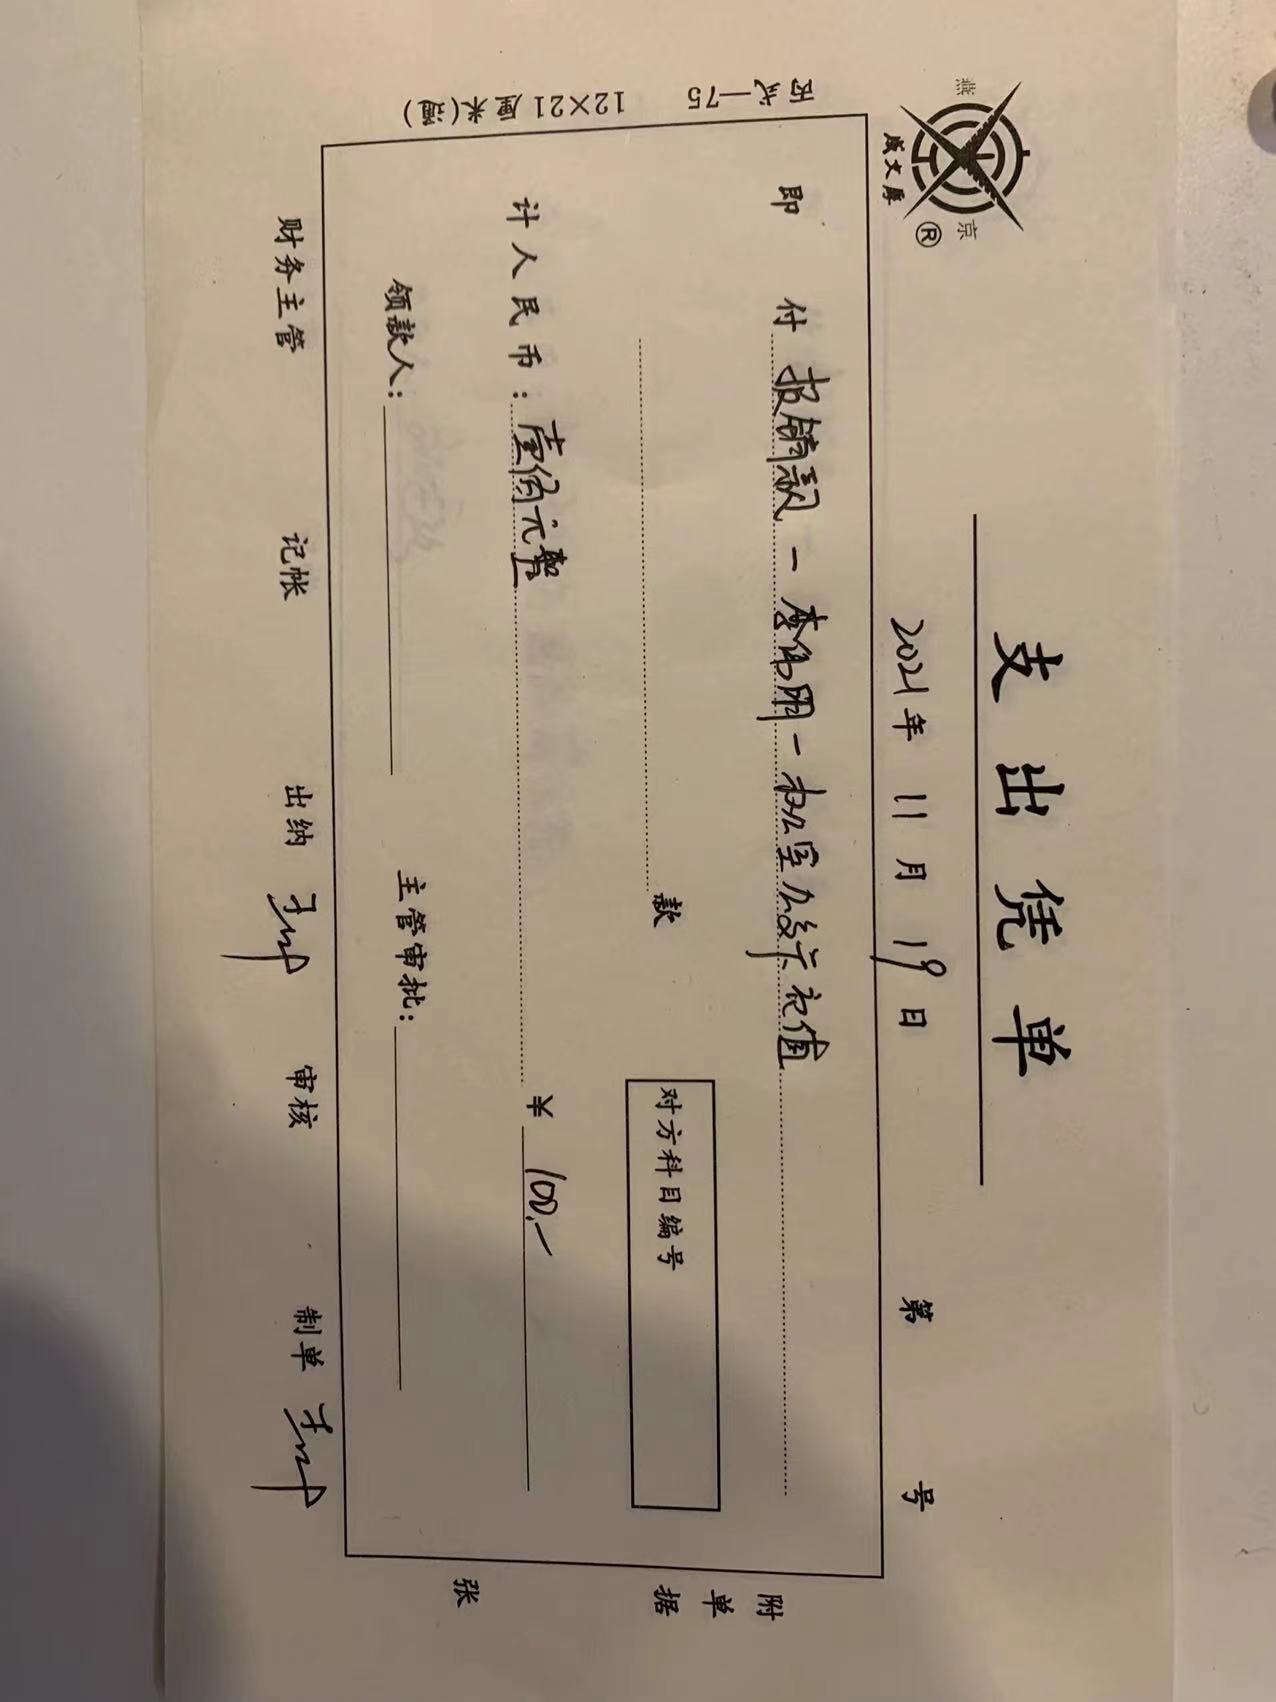 燕京
成文厚
®
支出凭单
2021年11月19日 第 号
即付 报销款-李伟明-办公室
款
对方科目编号
计人民币：壹佰元整 ¥ 100.-
领款人： 主管审批：
财务主管 记帐 出纳 审核 制单
附单据 张
丙式—75 12×21厘米(通)